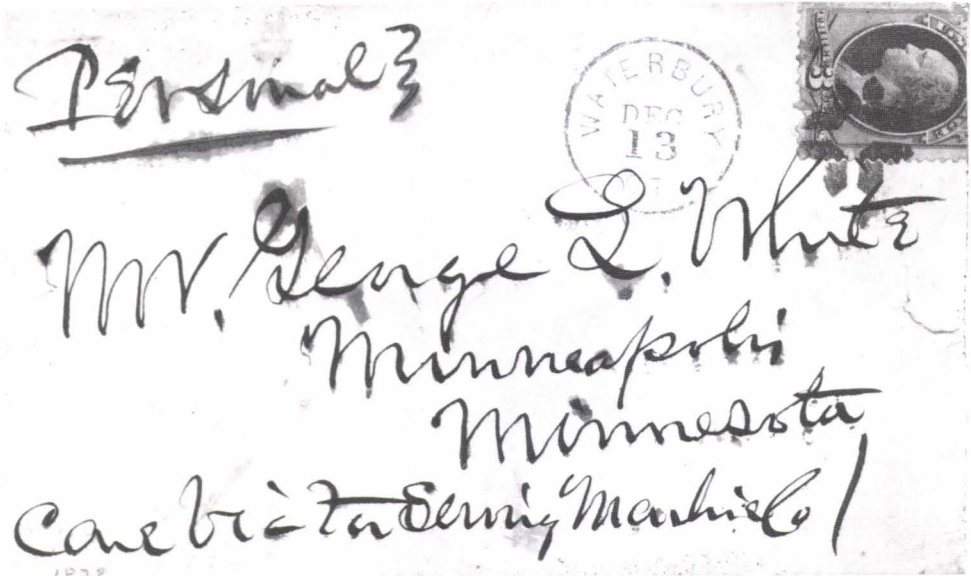 Personal
WATERBURY
DEC
13
Mr. George L. White
Minneapolis
Minnesota
Care Victor Sewing Machine Co
1878